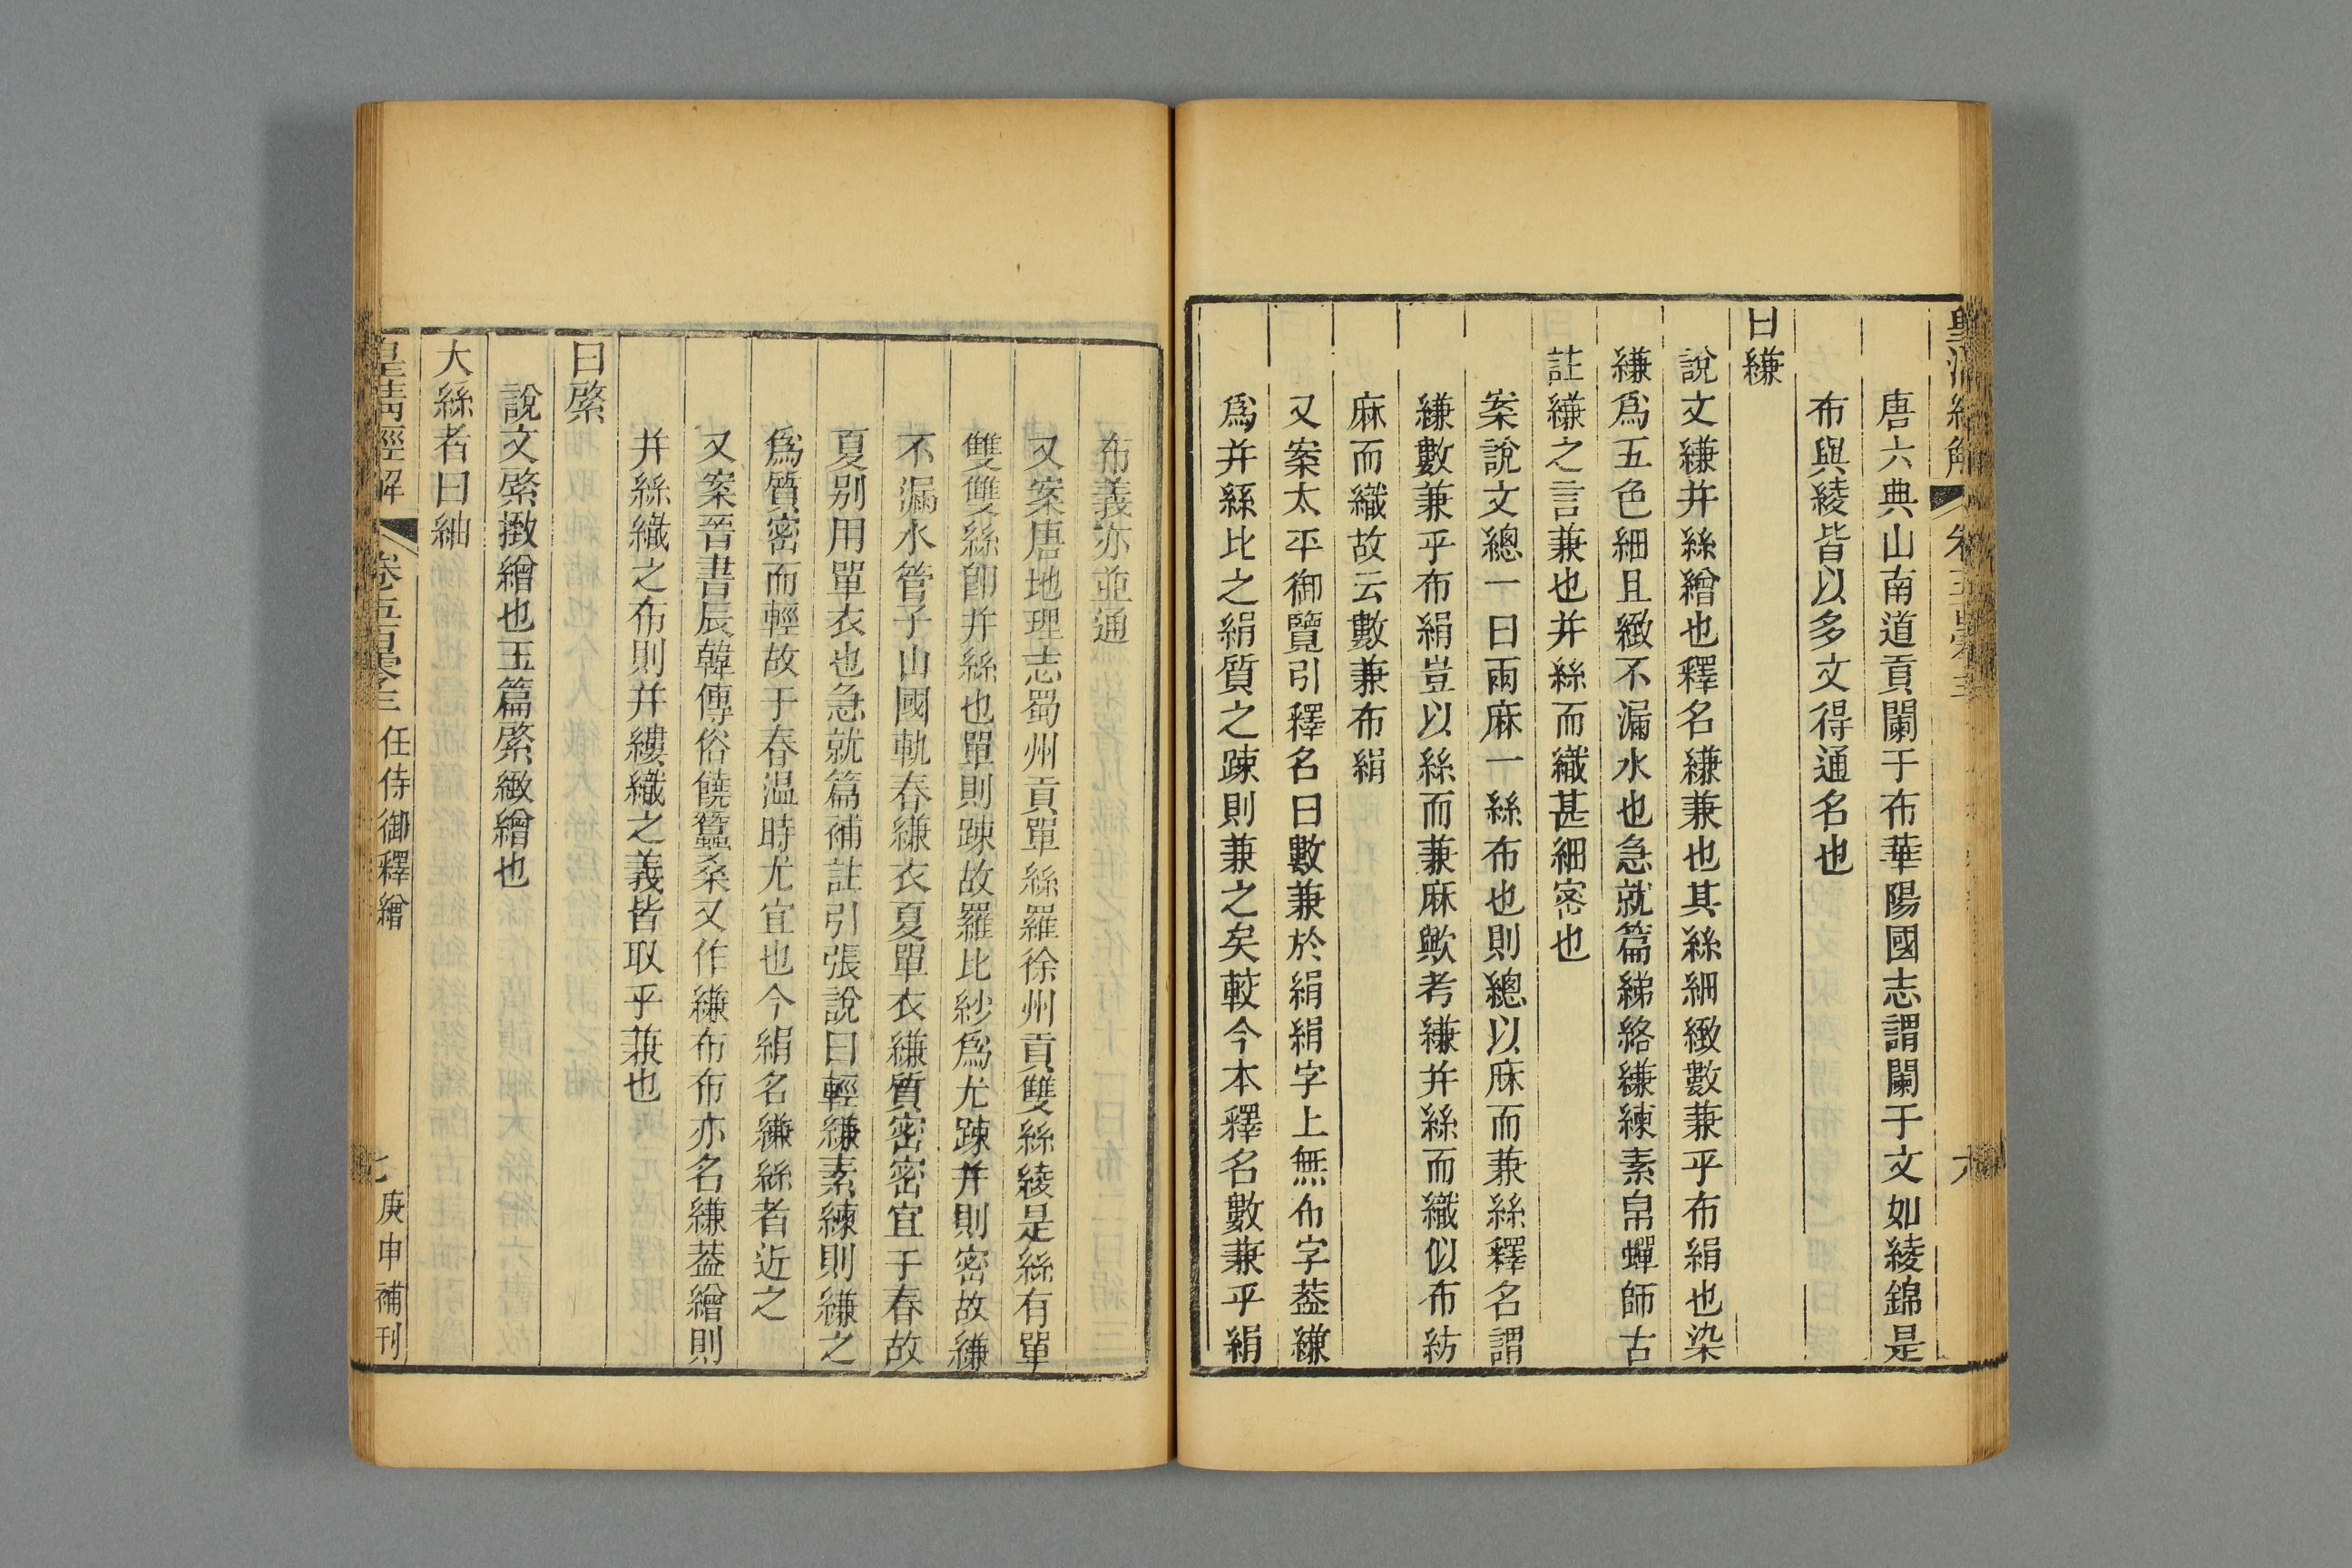 唐六典山南道貢闌于布華陽國志謂闌于文如綾錦是
布與綾皆以多文得通名也
曰縑
說文縑并絲繒也釋名縑兼也其絲細緻數兼乎布絹也染
縑爲五色細且緻不漏水也急就篇綈絡縑練素帛蟬師古
註縑之言兼也并絲而織甚細密也
案說文總一曰兩麻一絲布也則總以麻而兼絲釋名謂
縑數兼乎布絹豈以絲而兼麻歟考縑并絲而織似布紡
麻而織故云數兼布絹
又案太平御覽引釋名曰數兼於絹絹字上無布字葢縑
爲并絲比之絹質之踈則兼之矣較今本釋名數兼乎絹
布義亦並通
又案唐地理志蜀州貢單絲羅徐州貢雙絲綾是絲有單
雙雙絲卽并絲也單則踈故羅比紗爲尤踈并則密故縑
不漏水管子山國軌春縑衣夏單衣縑質密密宜于春故
夏别用單衣也急就篇補註引張說曰輕縑素練則縑之
爲質密而輕故于春温時尤宜也今絹名縑絲者近之
又案晉書辰韓傳俗饒蠶桑又作縑布布亦名縑葢繒則
并絲織之布則并縷織之義皆取乎兼也
曰綮
說文綮㨖繒也玉篇綮緻繒也
大絲者曰紬
皇淸經解 卷五百零三 任侍御釋繒 七 庚申補刊